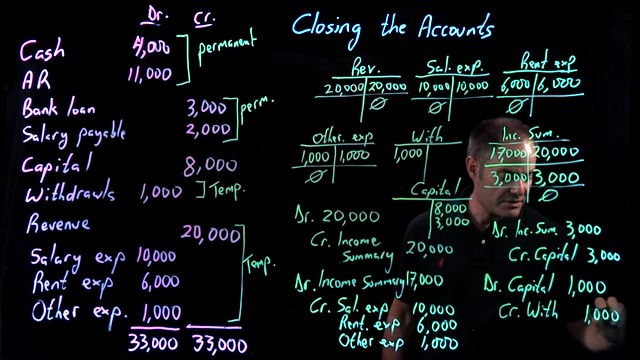 Dr. Cr.
Cash 4,000
AR 11,000
permanent
Bank loan 3,000
Salary payable 2,000
perm.
Capital 8,000
Withdrawls 1,000
Temp.
Revenue 20,000
Salary exp 10,000
Rent exp 6,000
Other exp. 1,000
Temp.
33,000 33,000
Closing the Accounts
Rev.
20,000 20,000
Ø
Sal. exp.
10,000 10,000
Ø
Rent exp
6,000 6,000
Ø
Other exp
1,000 1,000
Ø
With
1,000
Inc. Sum.
17,000 20,000
3,000 3,000
Ø
Capital
8,000
3,000
Dr. 20,000
Cr. Income
Summary 20,000
Dr. Income Summary 17,000
Cr. Sal. exp 10,000
Rent. exp 6,000
Other exp 1,000
Dr. Inc. Sum. 3,000
Cr. Capital 3,000
Dr. Capital 1,000
Cr. With 1,000